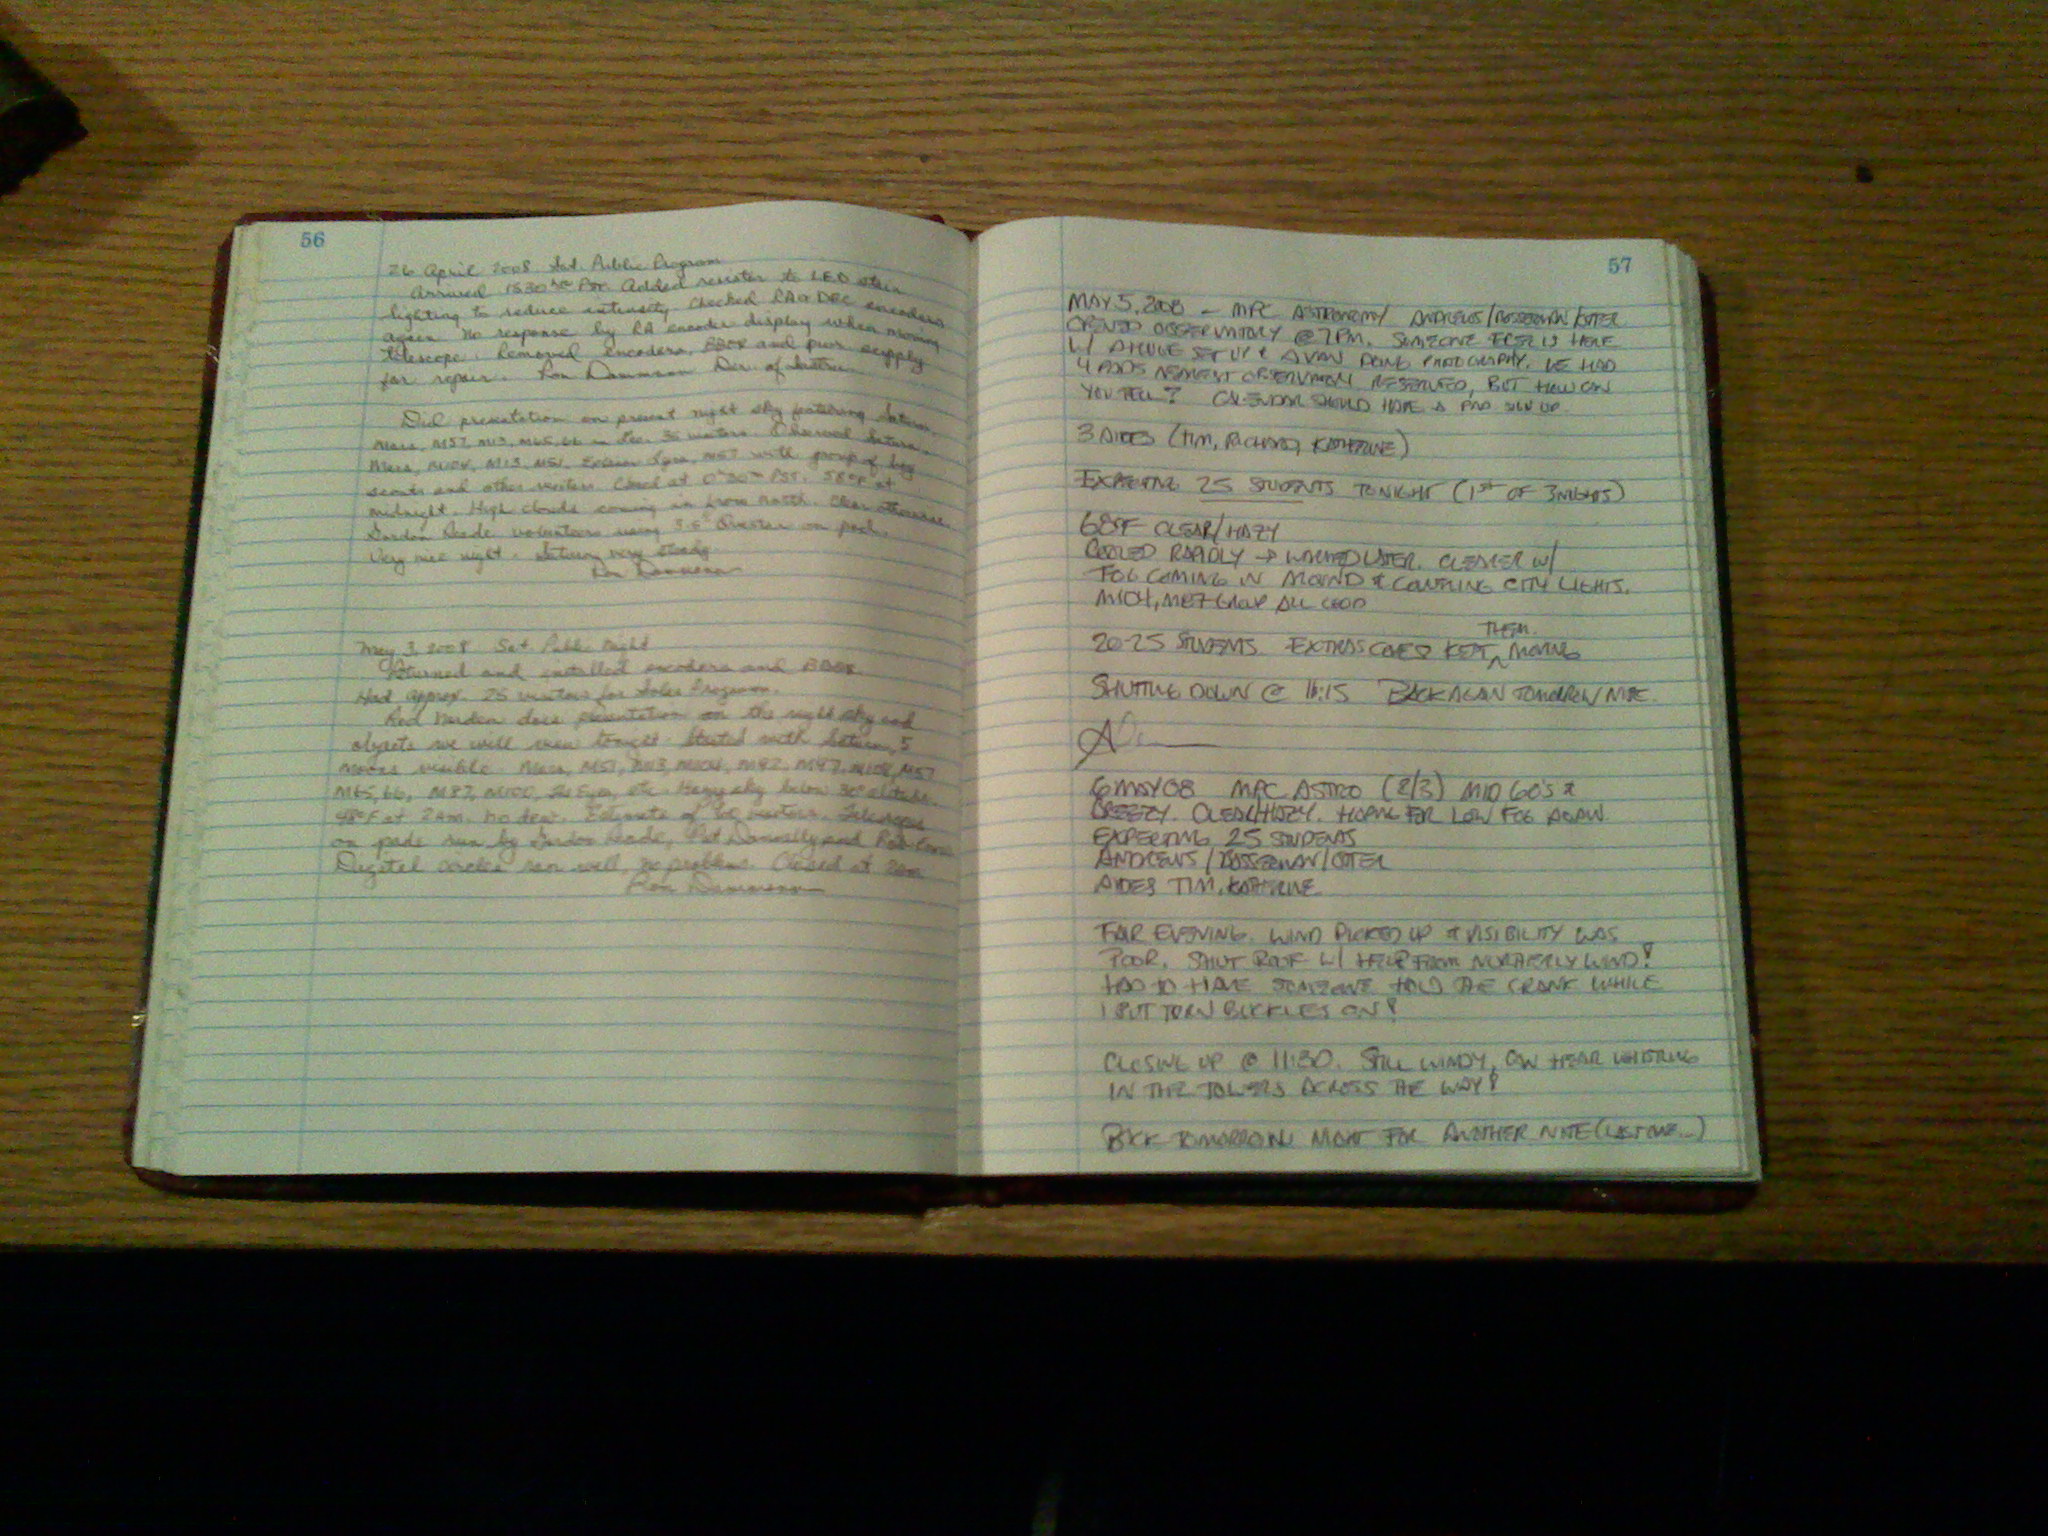 56
26 April 2008 Sat. Public Program
Arrived 1530 PST. Added resistor to LED stair
lighting to reduce intensity. Checked RA & DEC encoders
again no response by RA encoder display when moving
telescope. Removed encoders, BBOX and pwr supply
for repair. Ron Dammann Dir. of
Did presentation on present night sky featuring Saturn,
Mars, M57, M13, M65, 66 in Leo. 35 visitors. Observed Saturn,
Mars, M104, M13, M51, Epsilon Lyra, M57 with group of boy
scouts and other visitors. Closed at 0 30 PST. 58°F at
midnight. High clouds coming in from north. Clear otherwise.
Gordon Reade volunteers using 3.5" Questar on pad.
Very nice night. Saturn very steady
Ron Dammann
May 3, 2008 Sat. Public Night
Returned and installed encoders and BBOX.
Had approx. 25 visitors for Solar Program.
Rod Norden does presentation on the night sky and
objects we will view tonight. Started with Saturn, 5
moons visible. Mars, M51, M13, M104, M97, M57
M65, 66, M87, M100, etc. Hazy sky below 30° altitude.
48°F at 2AM. no dew. Estimate of visitors. Telescopes
on pads run by Gordon Reade, Pat Donnelly and
Digital circles ran well, no problems. Closed at 2am
Ron Dammann
57
MAY 5, 2008 – MPC ASTRONOMY ANDREWS/
OPENED OBSERVATORY @ 7PM. SOMEONE ELSE IS HERE
W/ A HUGE SET UP & A VAN DOING PHOTOGRAPHY. WE HAD
4 PADS NEAREST OBSERVATORY RESERVED, BUT HOW CAN
YOU TELL? CALENDAR SHOULD HAVE A PAD SIGN UP.
3 AIDES (TIM, RICHARD, KATHERINE)
EXPECTING 25 STUDENTS TONIGHT (1ST OF 3 NIGHTS)
68°F CLEAR/HAZY
COOLED RAPIDLY → WARMED LATER. CLEARER W/
FOG COMING IN AROUND & COVERING CITY LIGHTS.
M104, M87 GROUP ALL GOOD
20-25 STUDENTS. EXTRAS CAME & KEPT THEM MOVING
SHUTTING DOWN @ 11:15 BACK AGAIN TOMORROW NITE.
6 MAY 08 MPC ASTRO (2/3) MID 60'S &
BREEZY. CLEAR/HAZY. HOPING FOR LOW FOG AGAIN.
EXPECTING 25 STUDENTS
ANDREWS/
AIDES TIM, KATHERINE
FAIR EVENING. WIND PICKED UP & VISIBILITY WAS
POOR. SHUT ROOF W/ HELP FROM NORTHERLY WIND!
HAD TO HAVE SOMEONE HOLD THE CRANK WHILE
I PUT TURN BUCKLES ON!
CLOSING UP @ 11:30. STILL WINDY, CAN HEAR WHISTLING
IN THE TOWERS ACROSS THE WAY!
BACK TOMORROW NIGHT FOR ANOTHER NITE (LAST ONE...)